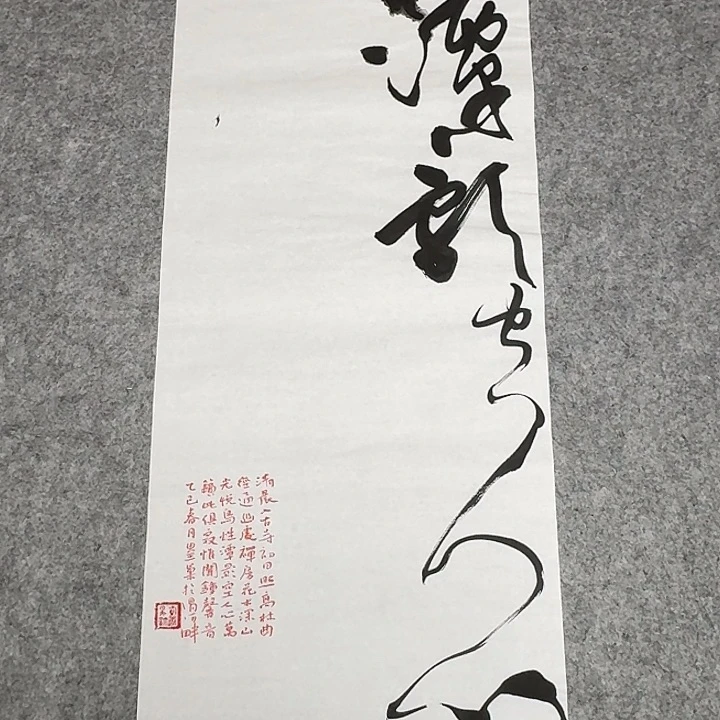 潭影空人心
清晨入古寺初日照高林曲
徑通幽處禪房花木深山
光悅鳥性潭影空人心萬
籟此俱寂惟聞鐘磬音
乙巳春月墨巢於渭河畔